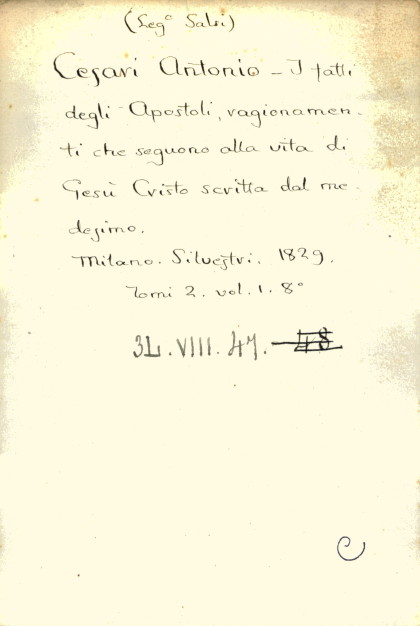 (Leg° Salsi)
Cesari Antonio - I fatti
degli Apostoli, ragionamen-
ti che seguono alla vita di
Gesù Cristo scritta dal me-
desimo.
Milano. Silvestri. 1829.
Tomi 2. vol. 1. 8°
3L.VIII.47. 48
C